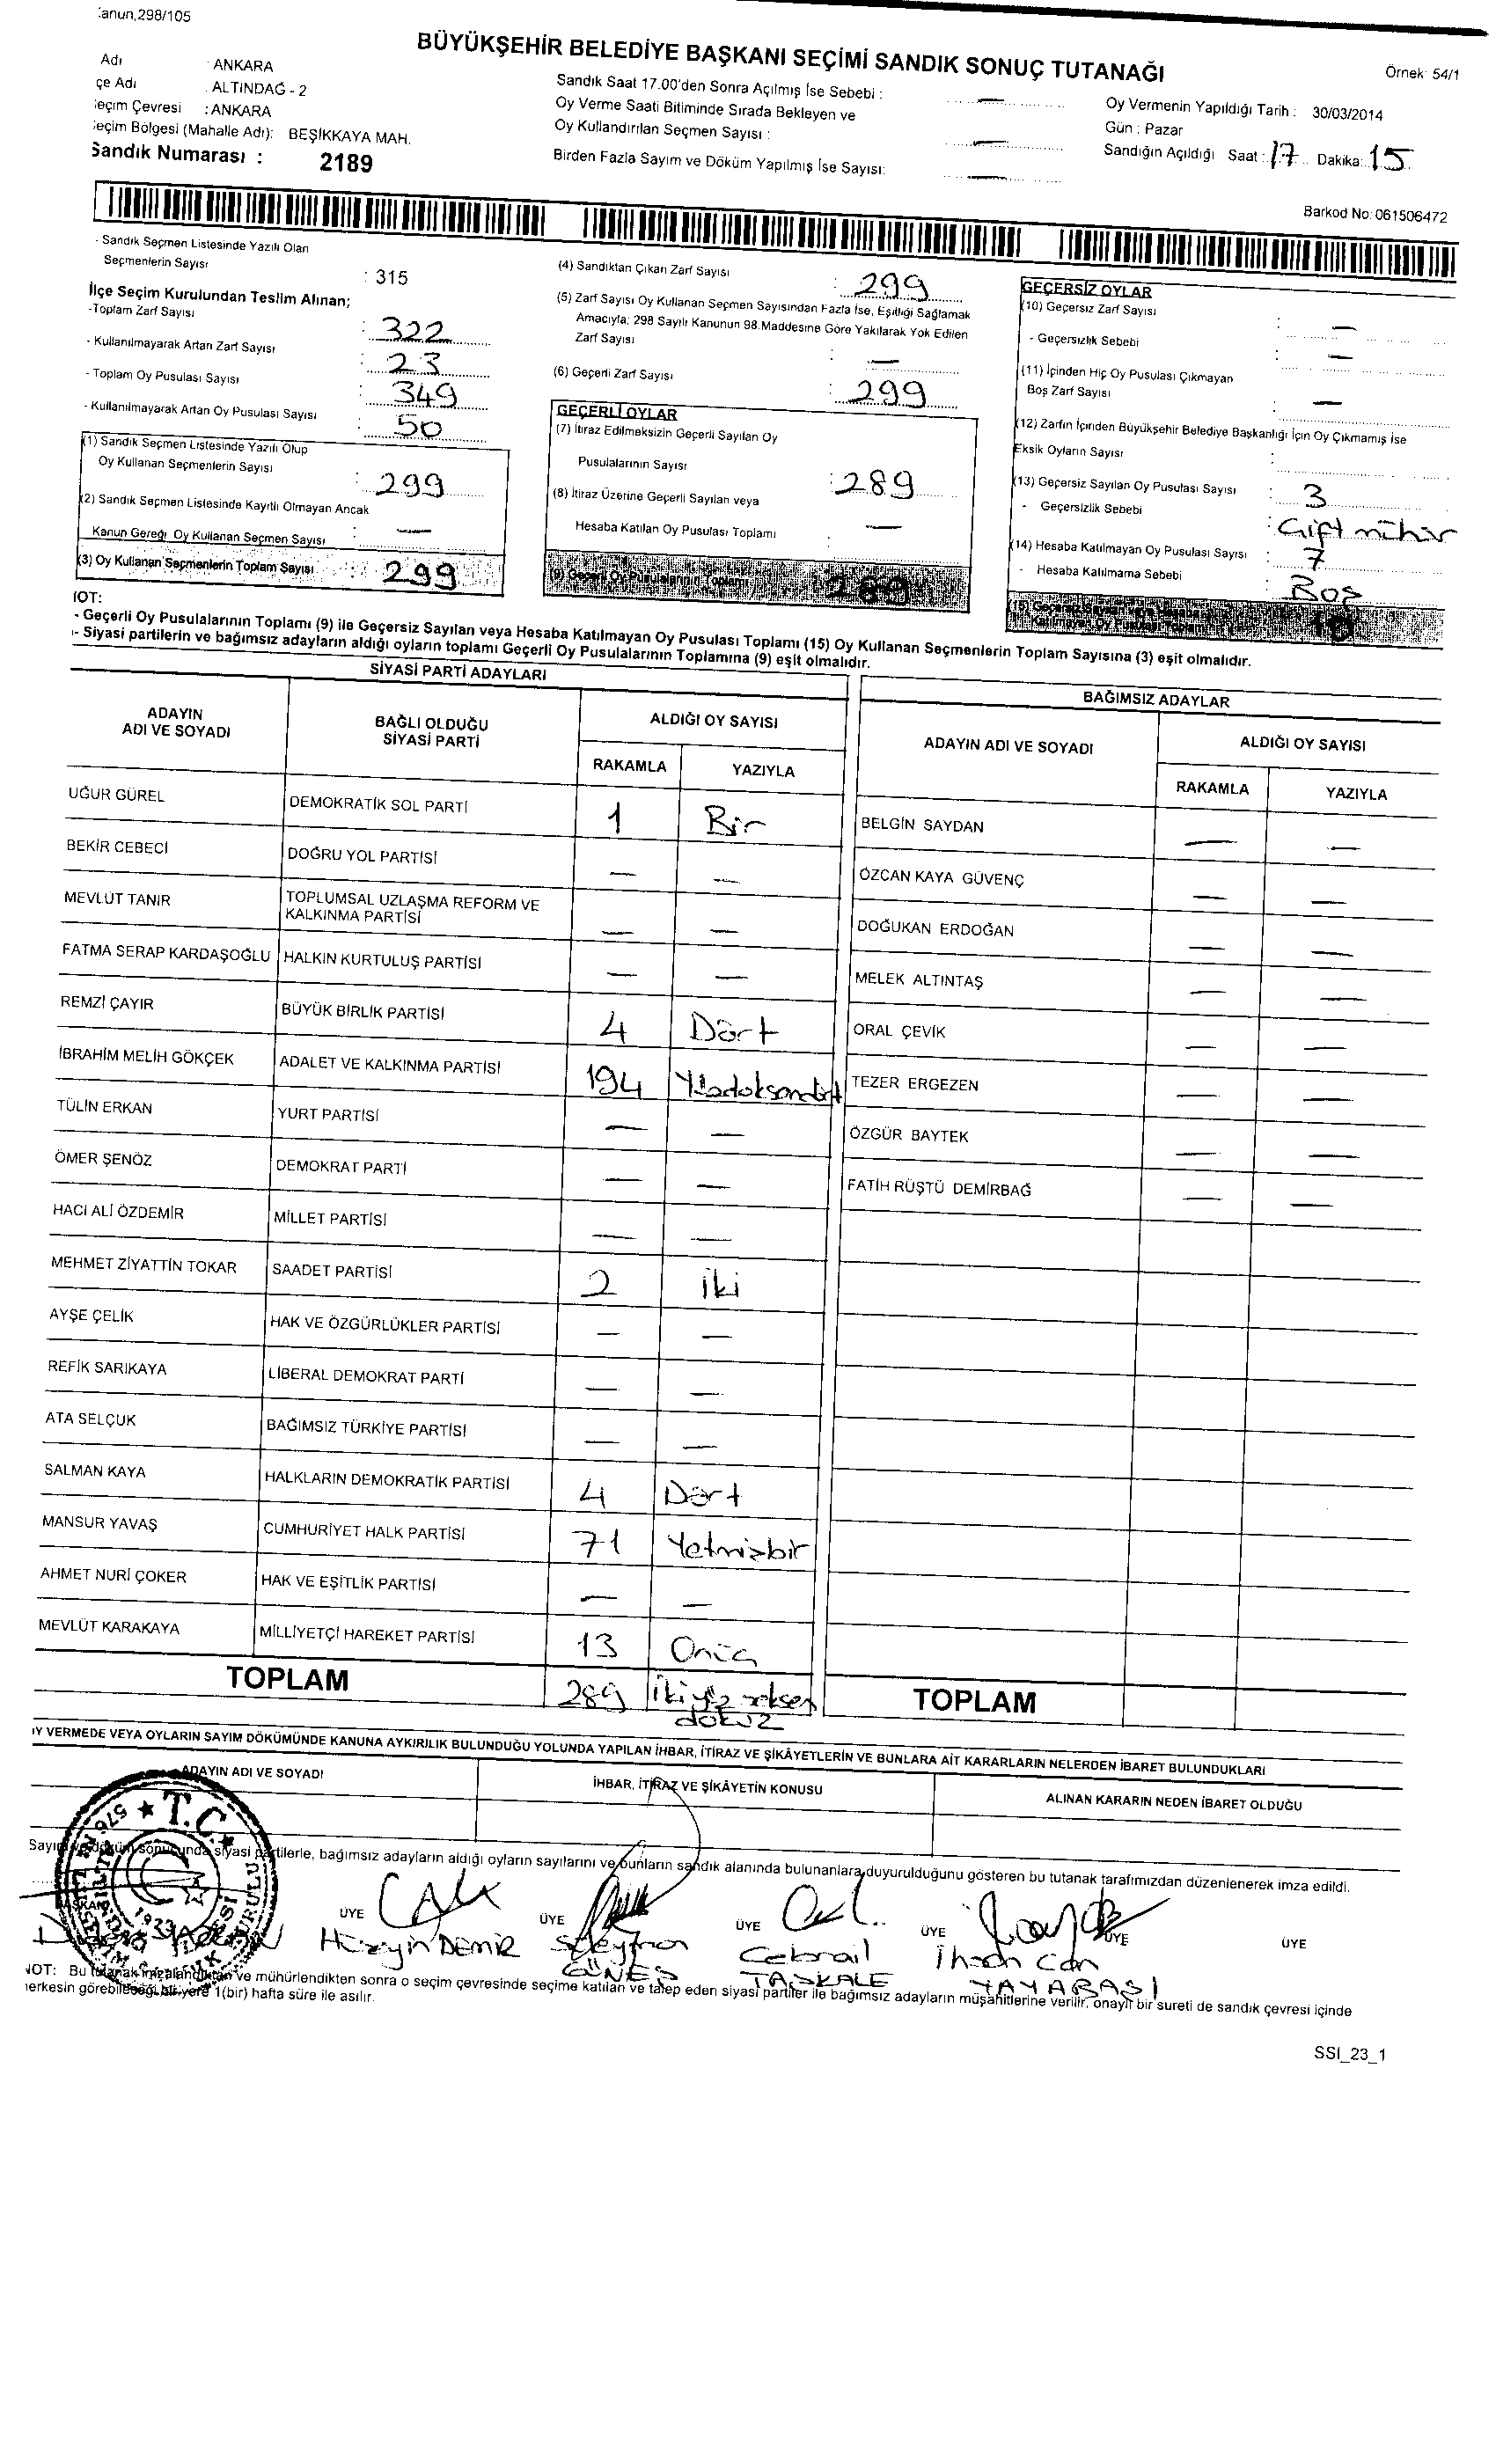 anun,298/105
BÜYÜKŞEHİR BELEDİYE BAŞKANI SEÇİMİ SANDIK SONUÇ TUTANAĞI
Örnek: 54/1
Adı : ANKARA
çe Adı : ALTINDAĞ - 2
eçim Çevresi : ANKARA
eçim Bölgesi (Mahalle Adı): BEŞİKKAYA MAH.
Sandık Numarası : 2189
Sandık Saat 17.00'den Sonra Açılmış İse Sebebi : —
Oy Verme Saati Bitiminde Sırada Bekleyen ve
Oy Kullandırılan Seçmen Sayısı : —
Birden Fazla Sayım ve Döküm Yapılmış İse Sayısı: —
Oy Vermenin Yapıldığı Tarih : 30/03/2014
Gün : Pazar
Sandığın Açıldığı Saat : 17 Dakika: 15
Barkod No: 061506472
- Sandık Seçmen Listesinde Yazılı Olan
Seçmenlerin Sayısı : 315
İlçe Seçim Kurulundan Teslim Alınan;
-Toplam Zarf Sayısı : 322
- Kullanılmayarak Artan Zarf Sayısı : 23
- Toplam Oy Pusulası Sayısı : 349
- Kullanılmayarak Artan Oy Pusulası Sayısı : 50
(1) Sandık Seçmen Listesinde Yazılı Olup
Oy Kullanan Seçmenlerin Sayısı : 299
(2) Sandık Seçmen Listesinde Kayıtlı Olmayan Ancak
Kanun Gereği Oy Kullanan Seçmen Sayısı : —
(3) Oy Kullanan Seçmenlerin Toplam Sayısı : 299
(4) Sandıktan Çıkan Zarf Sayısı : 299
(5) Zarf Sayısı Oy Kullanan Seçmen Sayısından Fazla İse, Eşitliği Sağlamak
Amacıyla; 298 Sayılı Kanunun 98.Maddesine Göre Yakılarak Yok Edilen
Zarf Sayısı : —
(6) Geçerli Zarf Sayısı : 299
GEÇERLİ OYLAR
(7) İtiraz Edilmeksizin Geçerli Sayılan Oy
Pusulalarının Sayısı : 289
(8) İtiraz Üzerine Geçerli Sayılan veya
Hesaba Katılan Oy Pusulası Toplamı : —
(9) Geçerli Oy Pusulalarının Toplamı : 289
GEÇERSİZ OYLAR
(10) Geçersiz Zarf Sayısı : —
- Geçersizlik Sebebi : —
(11) İçinden Hiç Oy Pusulası Çıkmayan
Boş Zarf Sayısı : —
(12) Zarfın İçinden Büyükşehir Belediye Başkanlığı İçin Oy Çıkmamış İse
Eksik Oyların Sayısı :
(13) Geçersiz Sayılan Oy Pusulası Sayısı : 3
- Geçersizlik Sebebi : Çift mühür
(14) Hesaba Katılmayan Oy Pusulası Sayısı : 7
- Hesaba Katılmama Sebebi : Boş
(15) Geçersiz Sayılan veya Hesaba
Katılmayan Oy Pusulası Toplamı : 10
IOT:
- Geçerli Oy Pusulalarının Toplamı (9) ile Geçersiz Sayılan veya Hesaba Katılmayan Oy Pusulası Toplamı (15) Oy Kullanan Seçmenlerin Toplam Sayısına (3) eşit olmalıdır.
- Siyasi partilerin ve bağımsız adayların aldığı oyların toplamı Geçerli Oy Pusulalarının Toplamına (9) eşit olmalıdır.
SİYASİ PARTİ ADAYLARI
ADAYIN ADI VE SOYADI
BAĞLI OLDUĞU SİYASİ PARTİ
ALDIĞI OY SAYISI
RAKAMLA YAZIYLA
UĞUR GÜREL DEMOKRATİK SOL PARTİ 1 Bir
BEKİR CEBECİ DOĞRU YOL PARTİSİ — —
MEVLÜT TANIR TOPLUMSAL UZLAŞMA REFORM VE KALKINMA PARTİSİ — —
FATMA SERAP KARDAŞOĞLU HALKIN KURTULUŞ PARTİSİ — —
REMZİ ÇAYIR BÜYÜK BİRLİK PARTİSİ 4 Dört
İBRAHİM MELİH GÖKÇEK ADALET VE KALKINMA PARTİSİ 194 Yüzdoksandört
TÜLİN ERKAN YURT PARTİSİ — —
ÖMER ŞENÖZ DEMOKRAT PARTİ — —
HACI ALİ ÖZDEMİR MİLLET PARTİSİ — —
MEHMET ZİYATTİN TOKAR SAADET PARTİSİ 2 iki
AYŞE ÇELİK HAK VE ÖZGÜRLÜKLER PARTİSİ — —
REFİK SARIKAYA LİBERAL DEMOKRAT PARTİ — —
ATA SELÇUK BAĞIMSIZ TÜRKİYE PARTİSİ — —
SALMAN KAYA HALKLARIN DEMOKRATİK PARTİSİ 4 Dört
MANSUR YAVAŞ CUMHURİYET HALK PARTİSİ 71 Yetmişbir
AHMET NURİ ÇOKER HAK VE EŞİTLİK PARTİSİ — —
MEVLÜT KARAKAYA MİLLİYETÇİ HAREKET PARTİSİ 13 Onüç
TOPLAM 289 İkiyüz seksen dokuz
BAĞIMSIZ ADAYLAR
ADAYIN ADI VE SOYADI
ALDIĞI OY SAYISI
RAKAMLA YAZIYLA
BELGİN SAYDAN — —
ÖZCAN KAYA GÜVENÇ — —
DOĞUKAN ERDOĞAN — —
MELEK ALTINTAŞ — —
ORAL ÇEVİK — —
TEZER ERGEZEN — —
ÖZGÜR BAYTEK — —
FATİH RÜŞTÜ DEMİRBAĞ — —
TOPLAM
Y VERMEDE VEYA OYLARIN SAYIM DÖKÜMÜNDE KANUNA AYKIRILIK BULUNDUĞU YOLUNDA YAPILAN İHBAR, İTİRAZ VE ŞİKÂYETLERİN VE BUNLARA AİT KARARLARIN NELERDEN İBARET BULUNDUKLARI
ADAYIN ADI VE SOYADI
İHBAR, İTİRAZ VE ŞİKÂYETİN KONUSU
ALINAN KARARIN NEDEN İBARET OLDUĞU
T.C.
Sayım ve döküm sonucunda siyasi partilerle, bağımsız adayların aldığı oyların sayılarını ve bunların sandık alanında bulunanlara duyurulduğunu gösteren bu tutanak tarafımızdan düzenlenerek imza edildi.
BAŞKAN ÜYE ÜYE ÜYE ÜYE ÜYE ÜYE
Hüseyin DEMİR
Süleyman GÜNEŞ
Cebrail TAŞKALE
İhsan Can YAYABAŞI
NOT: Bu tutanak imzalandıktan ve mühürlendikten sonra o seçim çevresinde seçime katılan ve talep eden siyasi partiler ile bağımsız adayların müşahitlerine verilir, onaylı bir sureti de sandık çevresi içinde
herkesin görebileceği bir yere 1(bir) hafta süre ile asılır.
SSI_23_1